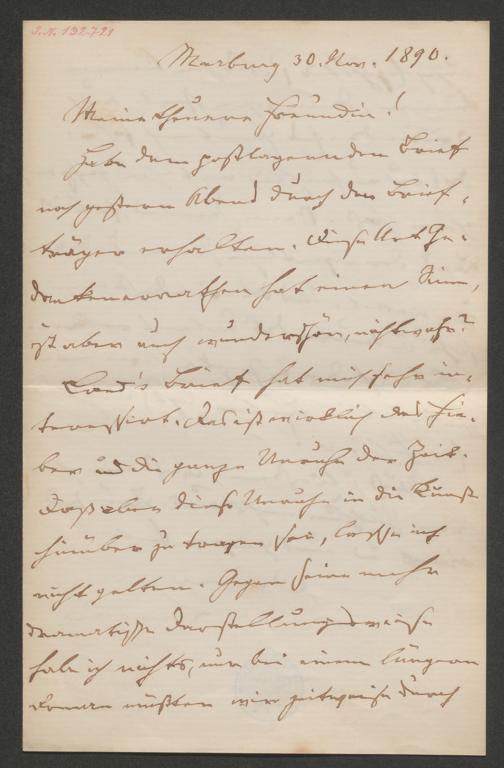 J.N. 132721
Marburg 30. Nov. 1890.
Meine theuere Freundin!
Habe den postlagernden Brief
noch gestern Abend durch den Brief-
träger erhalten. Diese Art Ge-
dankenerrathen hat einen Sinn,
ist aber auch wunderschön, nicht wahr?
Brief hat mich sehr in-
teressirt. Das ist wirklich das Fie-
ber und die ganze Unruhe der Zeit.
Daß eben diese Unruhe in die Kunst
hinüber zu tragen sei, lasse ich
nicht gelten. Gegen seine mehr
dramatische Darstellungsweise
habe ich nichts, nur bei einem längeren
Roman müßten wir zeitweise durch